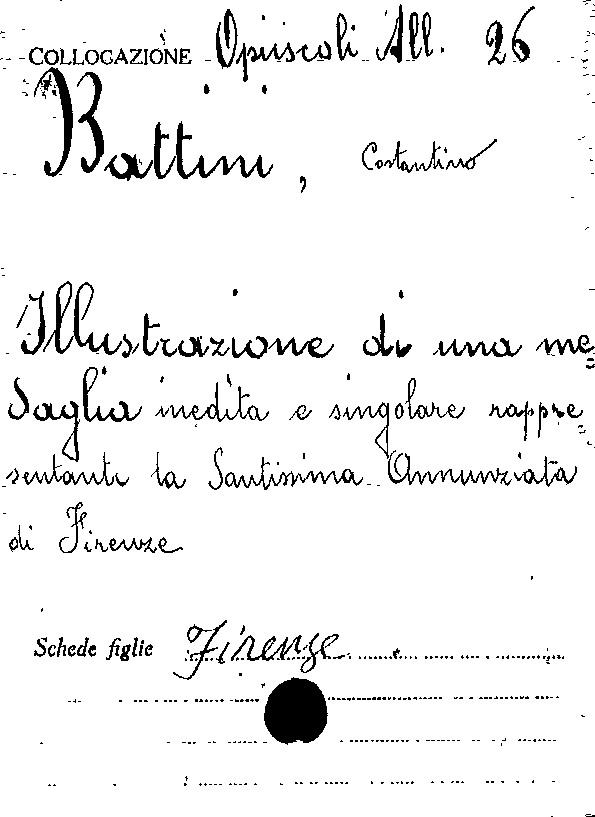 COLLOCAZIONE Opuscoli All. 26
Battini, Costantino
Illustrazione di una me=
daglia inedita e singolare rappre=
sentante la Santissima Annunziata
di Firenze
Schede figlie Firenze